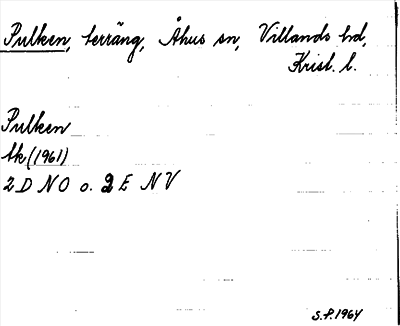 Pulken, terräng, Åhus sn, Villands hd,
Krist. l.
Pulken
tk (1961)
2 D NO o. 2 E NV
S.P. 1964